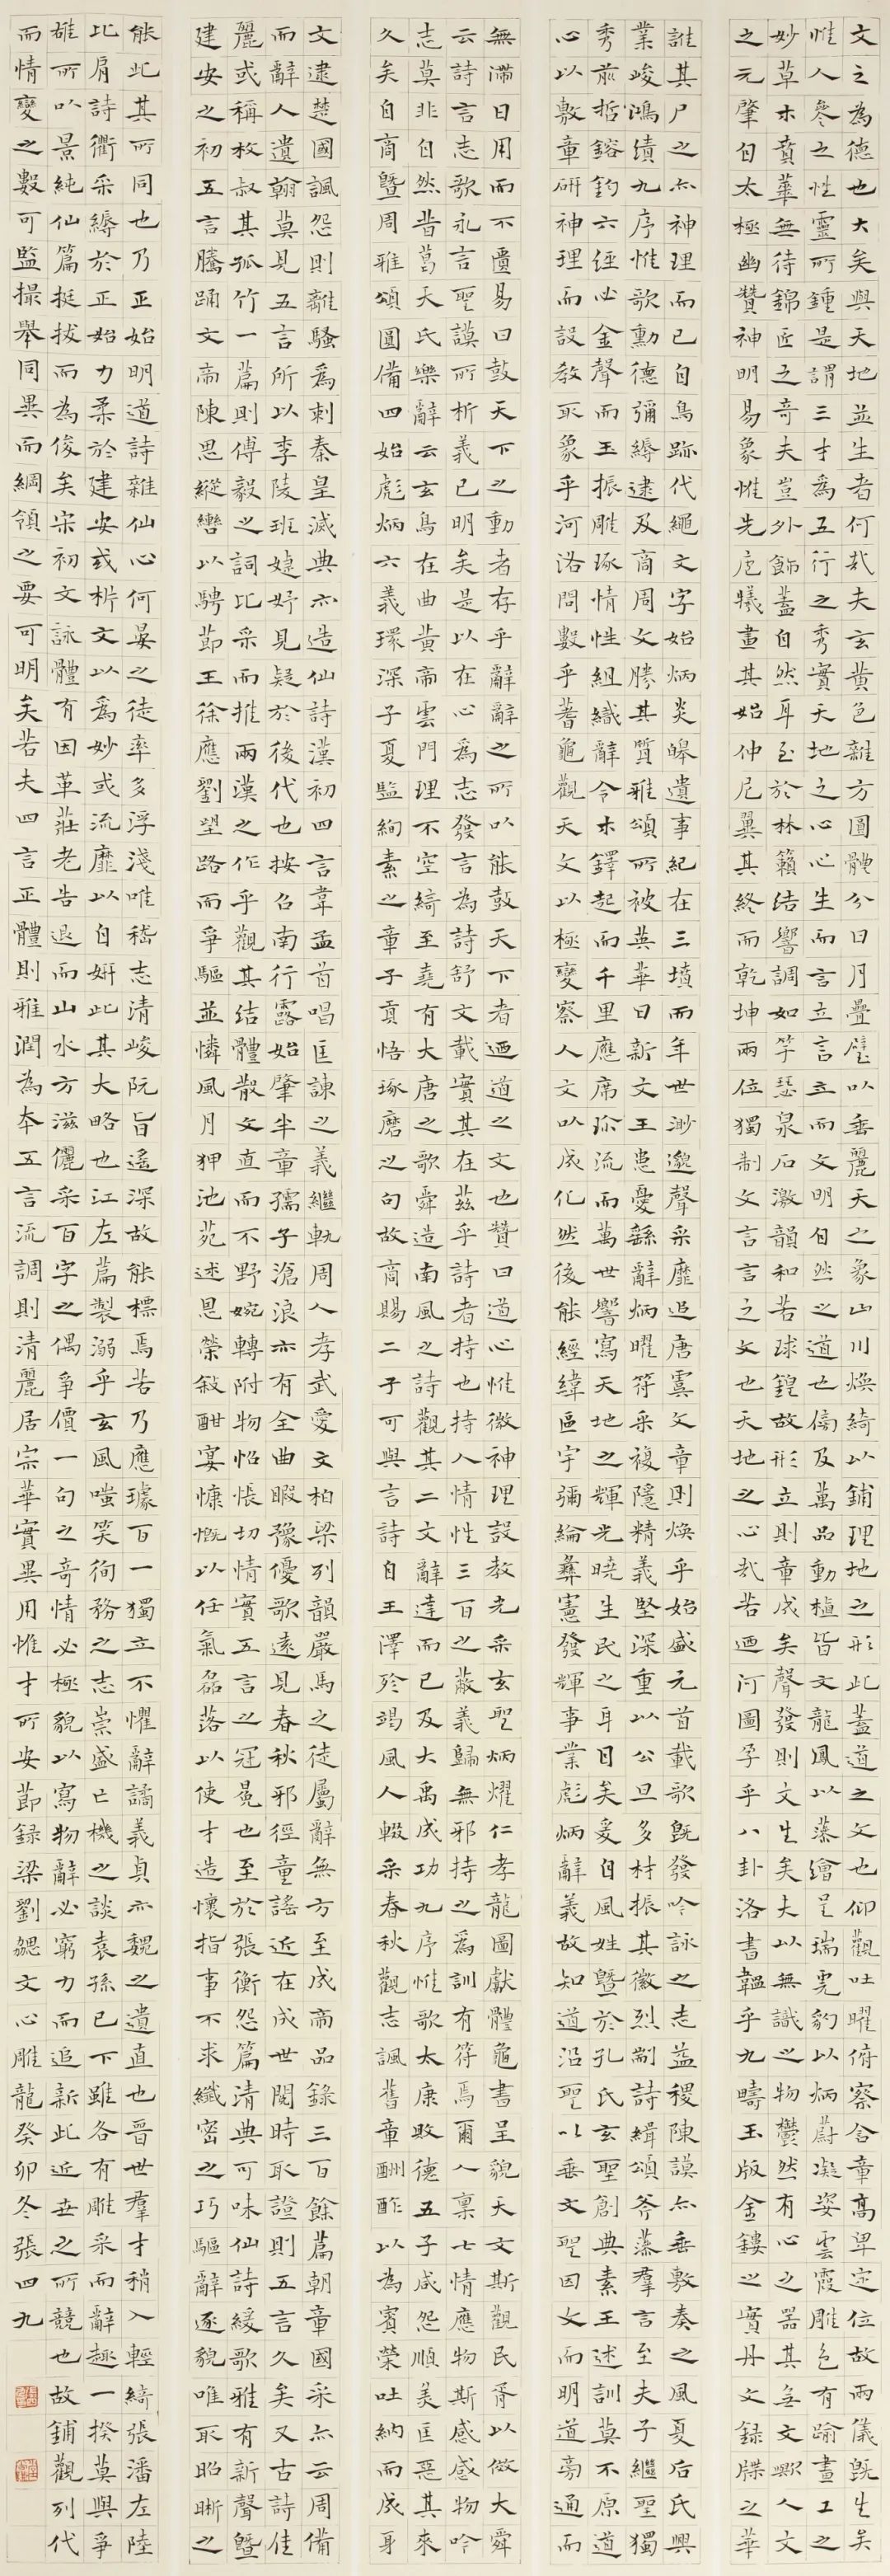 文之為德也大矣與天地並生者何哉夫玄黄色雜方圓體分日月疊璧以垂麗天之象山川煥綺以鋪理地之形此蓋道之文也仰觀吐曜俯察含章高卑定位故兩儀既生矣
惟人參之性靈所鍾是謂三才為五行之秀實天地之心心生而言立言立而文明自然之道也傍及萬品動植皆文龍鳳以藻繪呈瑞虎豹以炳蔚凝姿雲霞雕色有踰畫工之
妙草木賁華無待錦匠之奇夫豈外飾蓋自然耳至於林籟結響調如竽瑟泉石激韻和若球鍠故形立則章成矣聲發則文生矣夫以無識之物鬱然有心之器其無文歟人文
之元肇自太極幽贊神明易象惟先庖犧畫其始仲尼翼其終而乾坤兩位獨制文言言之文也天地之心哉若迺河圖孕乎八卦洛書韞乎九疇玉版金鏤之實丹文録牒之華
誰其尸之亦神理而已自鳥跡代繩文字始炳炎皞遺事紀在三墳而年世渺邈聲采靡追唐虞文章則煥乎始盛元首載歌既發吟詠之志益稷陳謨亦垂敷奏之風夏后氏興
業峻鴻績九序惟歌勳德彌縟逮及商周文勝其質雅頌所被英華日新文王患憂繇辭炳曜符采複隱精義堅深重以公旦多材振其徽烈剬詩緝頌斧藻羣言至夫子繼聖獨
秀前哲鎔鈞六經必金聲而玉振雕琢情性組織辭令木鐸起而千里應席珍流而萬世響寫天地之輝光曉生民之耳目矣爰自風姓暨於孔氏玄聖創典素王述訓莫不原道
心以敷章研神理而設教取象乎河洛問數乎蓍龜觀天文以極變察人文以成化然後能經緯區宇彌綸彝憲發輝事業彪炳辭義故知道沿聖以垂文聖因文而明道旁通而
無滯日用而不匱易曰鼓天下之動者存乎辭辭之所以能鼓天下者迺道之文也贊曰道心惟微神理設教光采玄聖炳燿仁孝龍圖獻體龜書呈貌天文斯觀民胥以倣大舜
云詩言志歌永言聖謨所析義已明矣是以在心為志發言為詩舒文載實其在茲乎詩者持也持人情性三百之蔽義歸無邪持之為訓有符焉爾人稟七情應物斯感感物吟
志莫非自然昔葛天氏樂辭云玄鳥在曲黄帝雲門理不空綺至堯有大唐之歌舜造南風之詩觀其二文辭達而已及大禹成功九序惟歌太康敗德五子咸怨順美匡惡其來
久矣自商暨周雅頌圓備四始彪炳六義環深子夏監絢素之章子貢悟琢磨之句故商賜二子可與言詩自王澤殄竭風人輟采春秋觀志諷舊章酬酢以為賓榮吐納而成身
文逮楚國諷怨則離騷爲刺秦皇滅典亦造仙詩漢初四言韋孟首唱匡諫之義繼軌周人孝武愛文柏梁列韻嚴馬之徒屬辭無方至成帝品錄三百餘篇朝章國采亦云周備
而辭人遺翰莫見五言所以李陵班婕妤見疑於後代也按召南行露始肇半章孺子滄浪亦有全曲暇豫優歌遠見春秋邪徑童謠近在成世閱時取證則五言久矣又古詩佳
麗或稱枚叔其孤竹一篇則傅毅之詞比采而推兩漢之作乎觀其結體散文直而不野婉轉附物怊悵切情實五言之冠冕也至於張衡怨篇清典可味仙詩緩歌雅有新聲暨
建安之初五言騰踊文帝陳思縱轡以騁節王徐應劉望路而爭驅並憐風月狎池苑述恩榮敘酣宴慷慨以任氣磊落以使才造懷指事不求纖密之巧驅辭逐貌唯取昭晰之
能此其所同也乃正始明道詩雜仙心何晏之徒率多浮淺唯嵇志清峻阮旨遙深故能標焉若乃應璩百一獨立不懼辭譎義貞亦魏之遺直也晉世羣才稍入輕綺張潘左陸
比肩詩衢采縟於正始力柔於建安或析文以爲妙或流靡以自妍此其大略也江左篇製溺乎玄風嗤笑徇務之志崇盛亡機之談袁孫已下雖各有雕采而辭趣一揆莫與爭
雄所以景純仙篇挺拔而為俊矣宋初文詠體有因革莊老告退而山水方滋儷采百字之偶爭價一句之奇情必極貌以寫物辭必窮力而追新此近世之所競也故鋪觀列代
而情變之數可監撮舉同異而綱領之要可明矣若夫四言正體則雅潤為本五言流調則清麗居宗華實異用惟才所安節録梁劉勰文心雕龍癸卯冬張四九